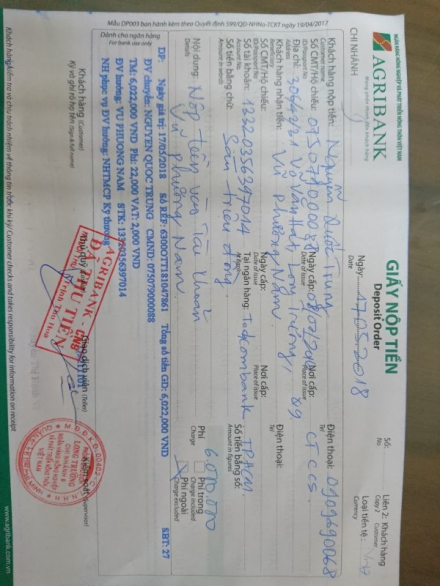 Mẫu DP003 ban hành kèm theo Quyết định 599/QĐ-NHNo-TCKT ngày 19/04/2017
NGÂN HÀNG NÔNG NGHIỆP VÀ PHÁT TRIỂN NÔNG THÔN VIỆT NAM
AGRIBANK
CHI NHÁNH
GIẤY NỘP TIỀN
Deposit Order
Ngày: 17.05.2018
Date
Số:
No.
Liên 2: Khách hàng
Copy 2 Customer
Loại tiền tệ:
Currency
Khách hàng nộp tiền: Nguyễn Quốc Trung
Customer
Số CMT/Hộ chiếu: 075079000088 Ngày cấp: Nơi cấp: CTCCS.
Địa chỉ: Võ Văn Hát, Long Trường, Q9 Điện thoại: 0909690068
Khách hàng nhận tiền: Vũ Phương Nam
Số CMT/Hộ chiếu: Ngày cấp: Nơi cấp: Điện thoại:
ID/Passport No Date of issue Place of issue Tel
Số tài khoản: 13320356397014 Tại ngân hàng: Techcombank TPHCM
Số tiền bằng chữ: Sáu triệu đồng. Số tiền bằng số: 6.000.000
Amount in words Amount in figures
Nội dung: Nộp tiền vào Tài khoản
Details
Vũ Phương Nam.
Phí
Charge
Phí trong
Charge included
Phí ngoài
Charge excluded
Dành cho ngân hàng
For bank use only
DP: Ngày giá trị: 17/05/2018 Số REF: 6300OTT181047861 Tổng số tiền GD: 6,022,000 VND SBT: 27
TM: 6,022,000 VND Phí: 22,000 VAT: 2,000 VND
ĐV chuyển: NGUYEN QUOC TRUNG CMND: 075079000088
ĐV hưởng: VU PHUONG NAM STK: 13320356397014
NH phục vụ ĐV hưởng: NHTMCP Kỹ thương
Khách hàng (Customer)
Ký và ghi rõ họ tên
Giao dịch viên (Teller)
Kiểm soát
AGRIBANK CN9
ĐÃ THU TIỀN
LONG TRƯỜNG
Khách hàng kiểm tra và chịu trách nhiệm về thông tin trước khi ký/ Customer checks and takes responsibility for information on receipt
www.agribank.com.vn